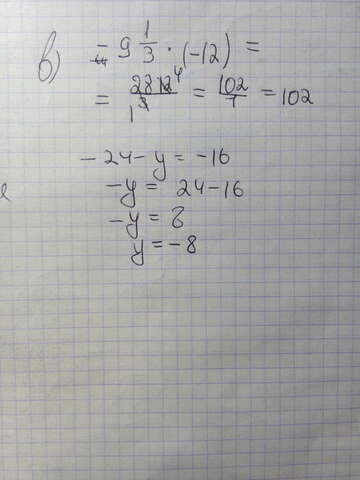 в) - 9 1/3 · (-12) =
= 28 12 4 / 1 3 = 102/1 = 102
- 24 - y = -16
-y = 24 - 16
-y = 8
y = -8